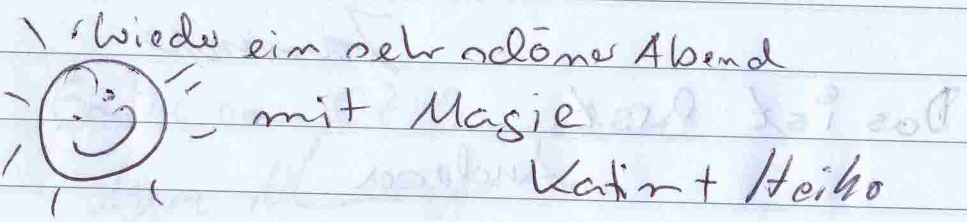 Wieder ein sehr schöner Abend
mit Magie
Katin + Heiko